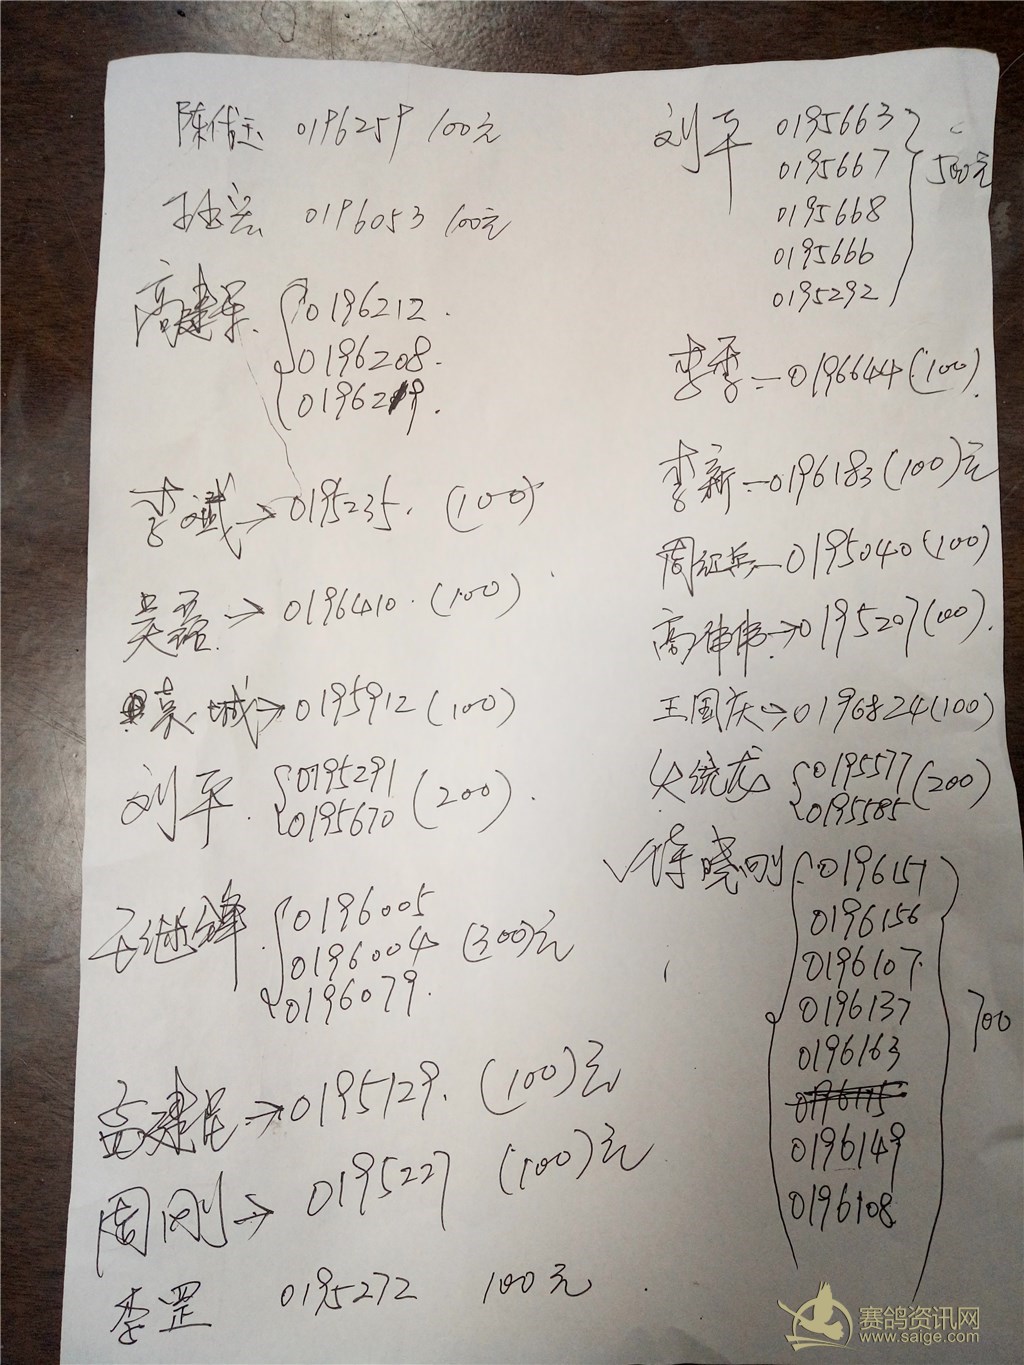 陈佳玉 0196259 100元
0196053 100元
高建军 0196212.
0196208.
0196219.
李斌→0195235. (100)
吴磊→0196410. (100)
城→0195912 (100)
刘平 0195291 (200).
0195670
王继锋 0196005
0196004 (300)元
0196079.
→0195129. (100)元
周刚→ 0195227 (100)元
李罡 0195272 100元
刘平 0195663 500元
0195667
0195668
0195666
0195292
李季—0196644(100).
李新—0196183(100)元
周征兵—0195040(100)
高伟→0195207(100).
王国庆→0196824(100)
龙 0195577 (200)
0195585
晓刚 0196157
0196156
0196107.
0196137 700
0196163
0196175
0196149
0196108
赛鸽资讯网
www.saige.com